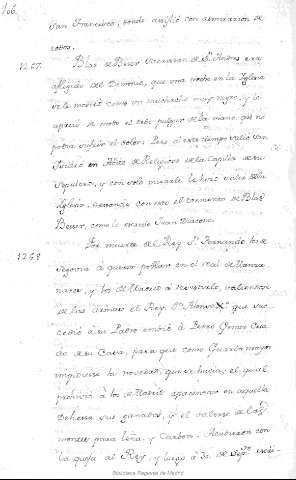 166.
San Francisco, donde assistió con admiracion de
todos.
1267. Blas de Besor Sacristan de Sn. Andres era
afligido del Demonio, que una noche en la Iglesia
se le mostró como un muchacho muy negro, y le
apretó de modo el dedo pulgar de la mano, que no
podia sufrir el dolor; Pero á este tiempo salió San
Isidro en Abito de Religioso de la Capilla de su
Sepulcro, y con solo mirarle le hizo salir de la
Iglesia, cesando con esto el tormento de Blas
Besor, como lo escrive Juan Diacono.
1268 Por muerte del Rey Sn. Fernando los de
Segovia á querer poblar en el real de Manza
nares, y los de Madrid á resistirlo, valiendose
de las armas el Rey Dn. Alonso X.º que suc
cedió á su Padre embió á Pedro Gomez Cria
do de su Casa, para que como Guarda mayor
impidiesse la novedad, que se hacia, el qual
prohivió á los de Madrid apacentar en aquella
Dehessa sus ganados, y el valerse de los
montes para leña y Carbon. Acudieron con
la quexa al Rey, y luego á 30 de Sepre. escri-
Biblioteca Regional de Madrid